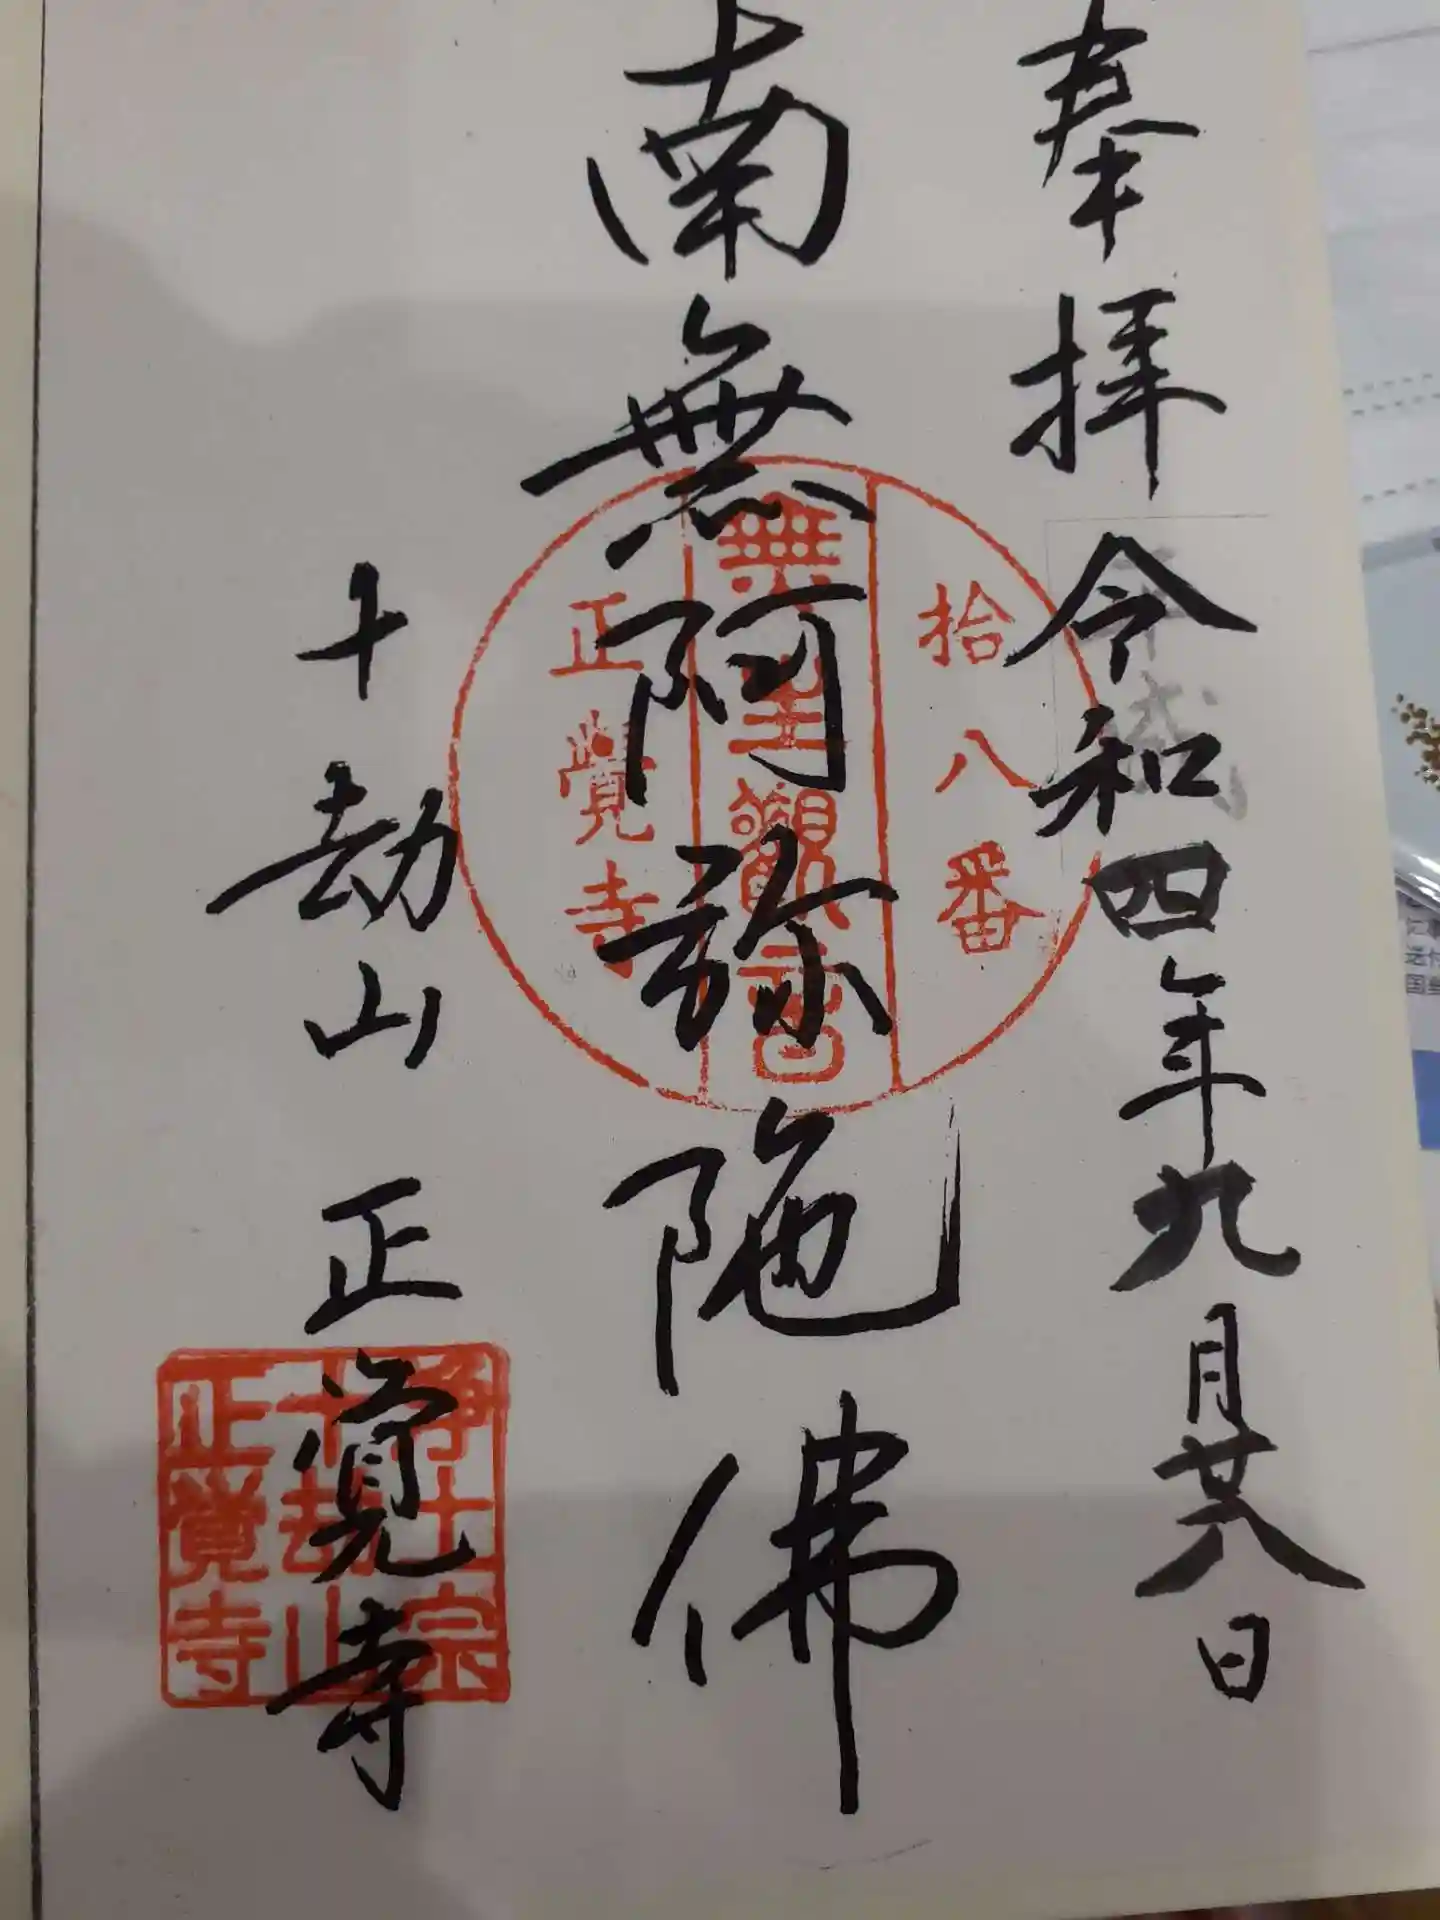 奉拝 令和四年九月廿八日
南無阿弥陀佛
十劫山 正覚寺
拾八番
無量觀音
正覺寺
浄土宗
十劫山
正覺寺
送付